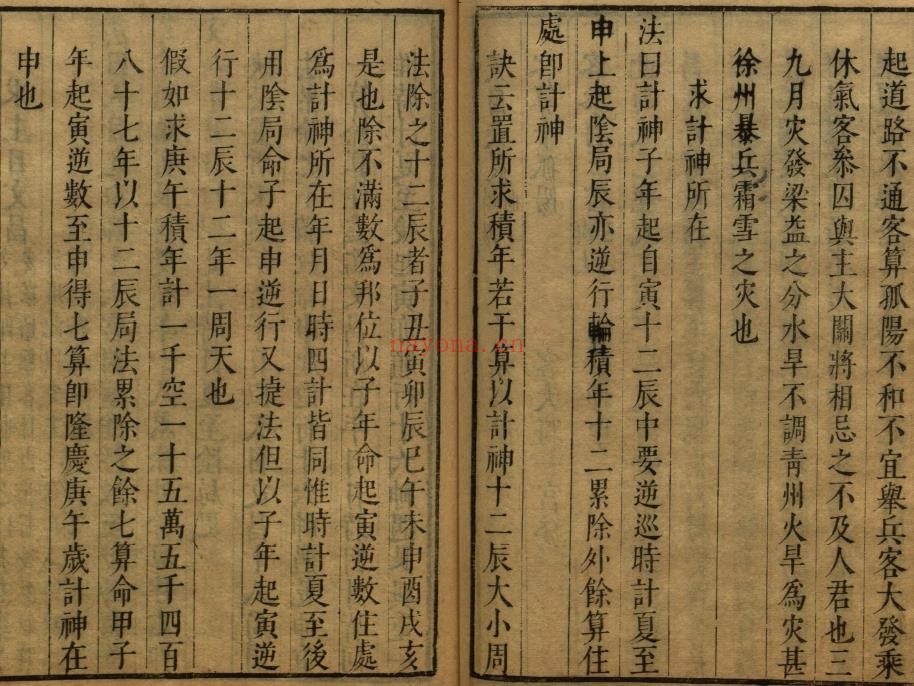 起道路不通客算孤陽不和不宜舉兵客大發乘
休氣客叅囚與主大關將相忌之不及人君也三
九月灾發梁益之分水旱不調青州火旱爲灾甚
徐州暴兵霜雪之灾也
求計神所在
法曰計神子年起自寅十二辰中要逆巡時計夏至
申上起陰局辰亦逆行輪積年十二累除外餘算住
處卽計神
訣云置所求積年若干算以計神十二辰大小周
法除之十二辰者子丑寅卯辰巳午未申酉戌亥
是也除不滿數爲邦位以子年命起寅逆數住處
爲計神所在年月日時四計皆同惟時計夏至後
用陰局命子起申逆行又㨗法但以子年起寅逆
行十二辰十二年一周天也
假如求庚午積年計一千空一十五萬五千四百
八十七年以十二辰局法累除之餘七算命甲子
年起寅逆數至申得七算卽隆慶庚午歲計神在
申也
nayona.cn